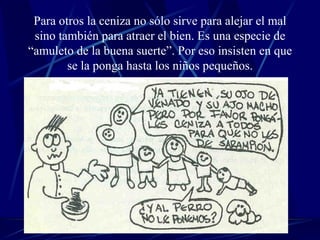 Para otros la ceniza no sólo sirve para alejar el mal
sino también para atraer el bien. Es una especie de
“amuleto de la buena suerte”. Por eso insisten en que
se la ponga hasta los niños pequeños.
YA TIENEN SU OJO DE
VENADO Y SU AJO MACHO
PERO POR FAVOR PONGA-
LES CENIZA A TODOS
PARA QUE NO LES
DE SARAMPION.
¿Y AL PERRO
NO LE PONEMOS?